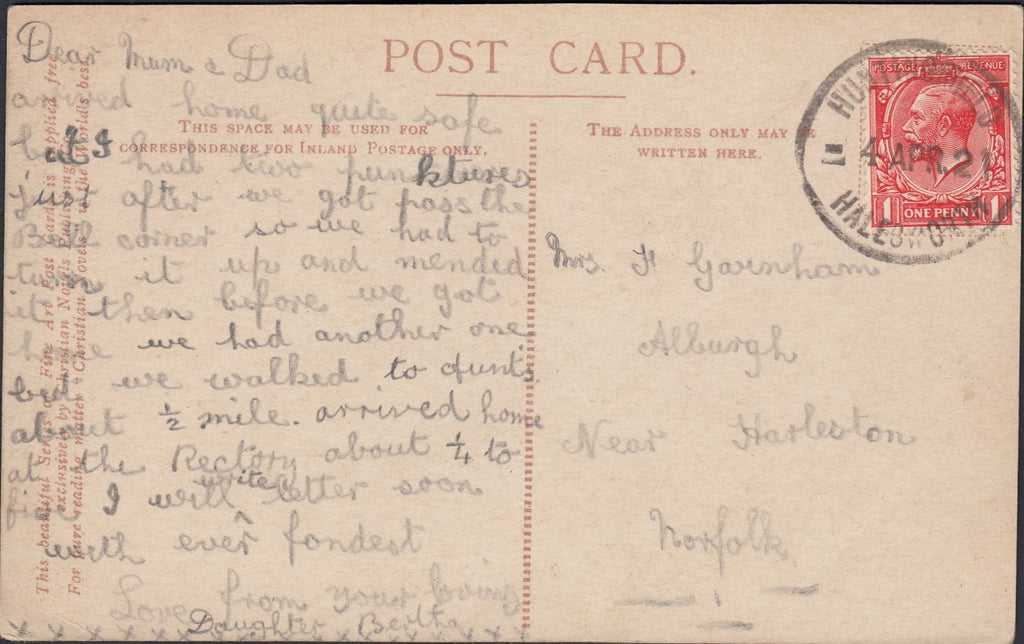 POST CARD.
THIS SPACE MAY BE USED FOR
CORRESPONDENCE FOR INLAND POSTAGE ONLY.
THE ADDRESS ONLY MAY BE
WRITTEN HERE.
This beautiful Series of Fine Art Post Cards is supplied free
exclusively by Christian Novels Publishing
For pure reading matter "Christian Novels" is the World's best.
Dear Mum & Dad
arrived home quite safe
but I had two punktures
just after we got pass the
Bell corner so we had to
turn it up and mended
it then before we got
home we had another one
but we walked to Aunts
about ½ mile. arrived home
at the Rectory about ¼ to
five I will write letter soon
with ever fondest
Love from your loving
Daughter Bertha
x x x x x x x x x x x
Mrs. H Garnham
Alburgh
Near Harleston
Norfolk
POSTAGE REVENUE
1 ONE PENNY 1
4 APR. 21
HALESWORTH